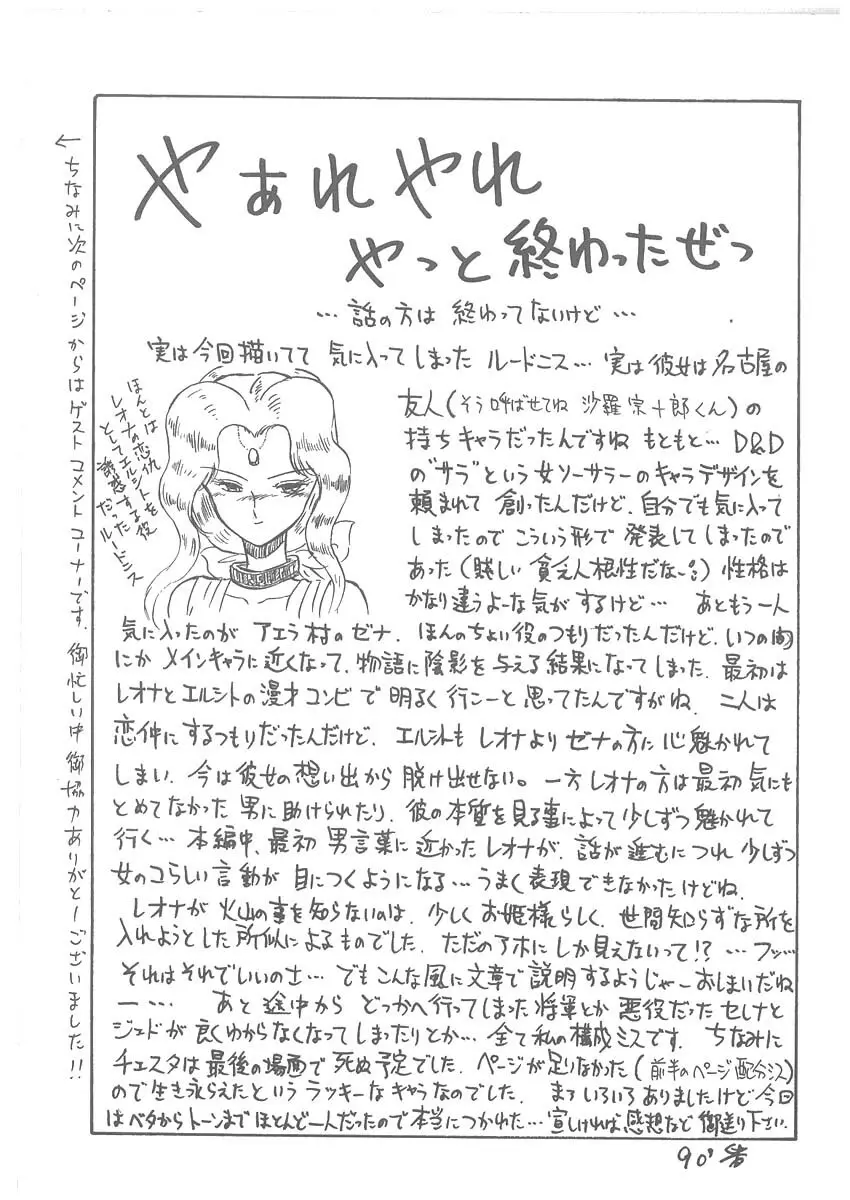 やぁれやれ
やっと終わったぜっ
…話の方は終わってないけど…
実は今回描いてて気に入ってしまったルードニス…実は彼女は名古屋の
友人(そう呼ばせてね沙羅宗十郎くん)の
持ちキャラだったんですねもともと…D&D
の"サラ"という女ソーサラーのキャラデザインを
頼まれて創ったんだけど、自分でも気に入って
しまったのでこういう形で発表してしまったので
あった(賎しい貧乏人根性だな〜) 性格は
かなり違うよーな気がするけど… あともう一人
気に入ったのがアエラ村のゼナ、ほんのちょい役のつもりだったんだけど、いつの間
にかメインキャラに近くなって、物語に陰影を与える結果になってしまった、最初は
レオナとエルシトの漫才コンビで明るく行こーと思ってたんですがね、二人は
恋仲にするつもりだったんだけど、エルシトもレオナよりゼナの方に心魅かれて
しまい、今は彼女の想い出から脱け出せない。一方レオナの方は最初気にも
とめてなかった男に助けられたり、彼の本質を見る事によって少しずつ魅かれて
行く…本編中、最初男言葉に近かったレオナが、話が進むにつれ少しずつ
女のコらしい言動が目につくようになる…うまく表現できなかったけどね、
レオナが火山の事を知らないのは、少しくお姫様らしく、世間知らずな所を
入れようとした所似によるものでした、ただのアホにしか見えないって!?…フッ…
それはそれでいいのさ…でもこんな風に文章で説明するようじゃーおしまいだね
ー… あと途中からどっかへ行ってしまった将軍とか悪役だったセレナと
ジェドが良くわからなくなってしまったりとか…全て私の構成ミスです、ちなみに
チェスタは最後の場面で死ぬ予定でした、ページが足りなかった(前半のページ配分ミス)
ので生き永らえたというラッキーなキャラなのでした、まァいろいろありましたけど今回
はベタからトーンまでほとんど一人だったので本当につかれた…宣しければ感想など御送り下さい、
90'
ほんとは
レオナの恋仇
としてエルシトを
誘惑する役
だった
ルードニス
←ちなみに次のページからはゲストコメントコーナーです、御忙しい中御協力ありがとーございました!!